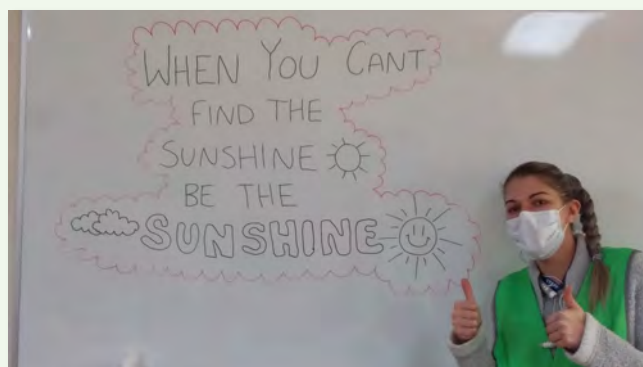 WHEN YOU CANT
FIND THE
SUNSHINE
BE THE
SUNSHINE